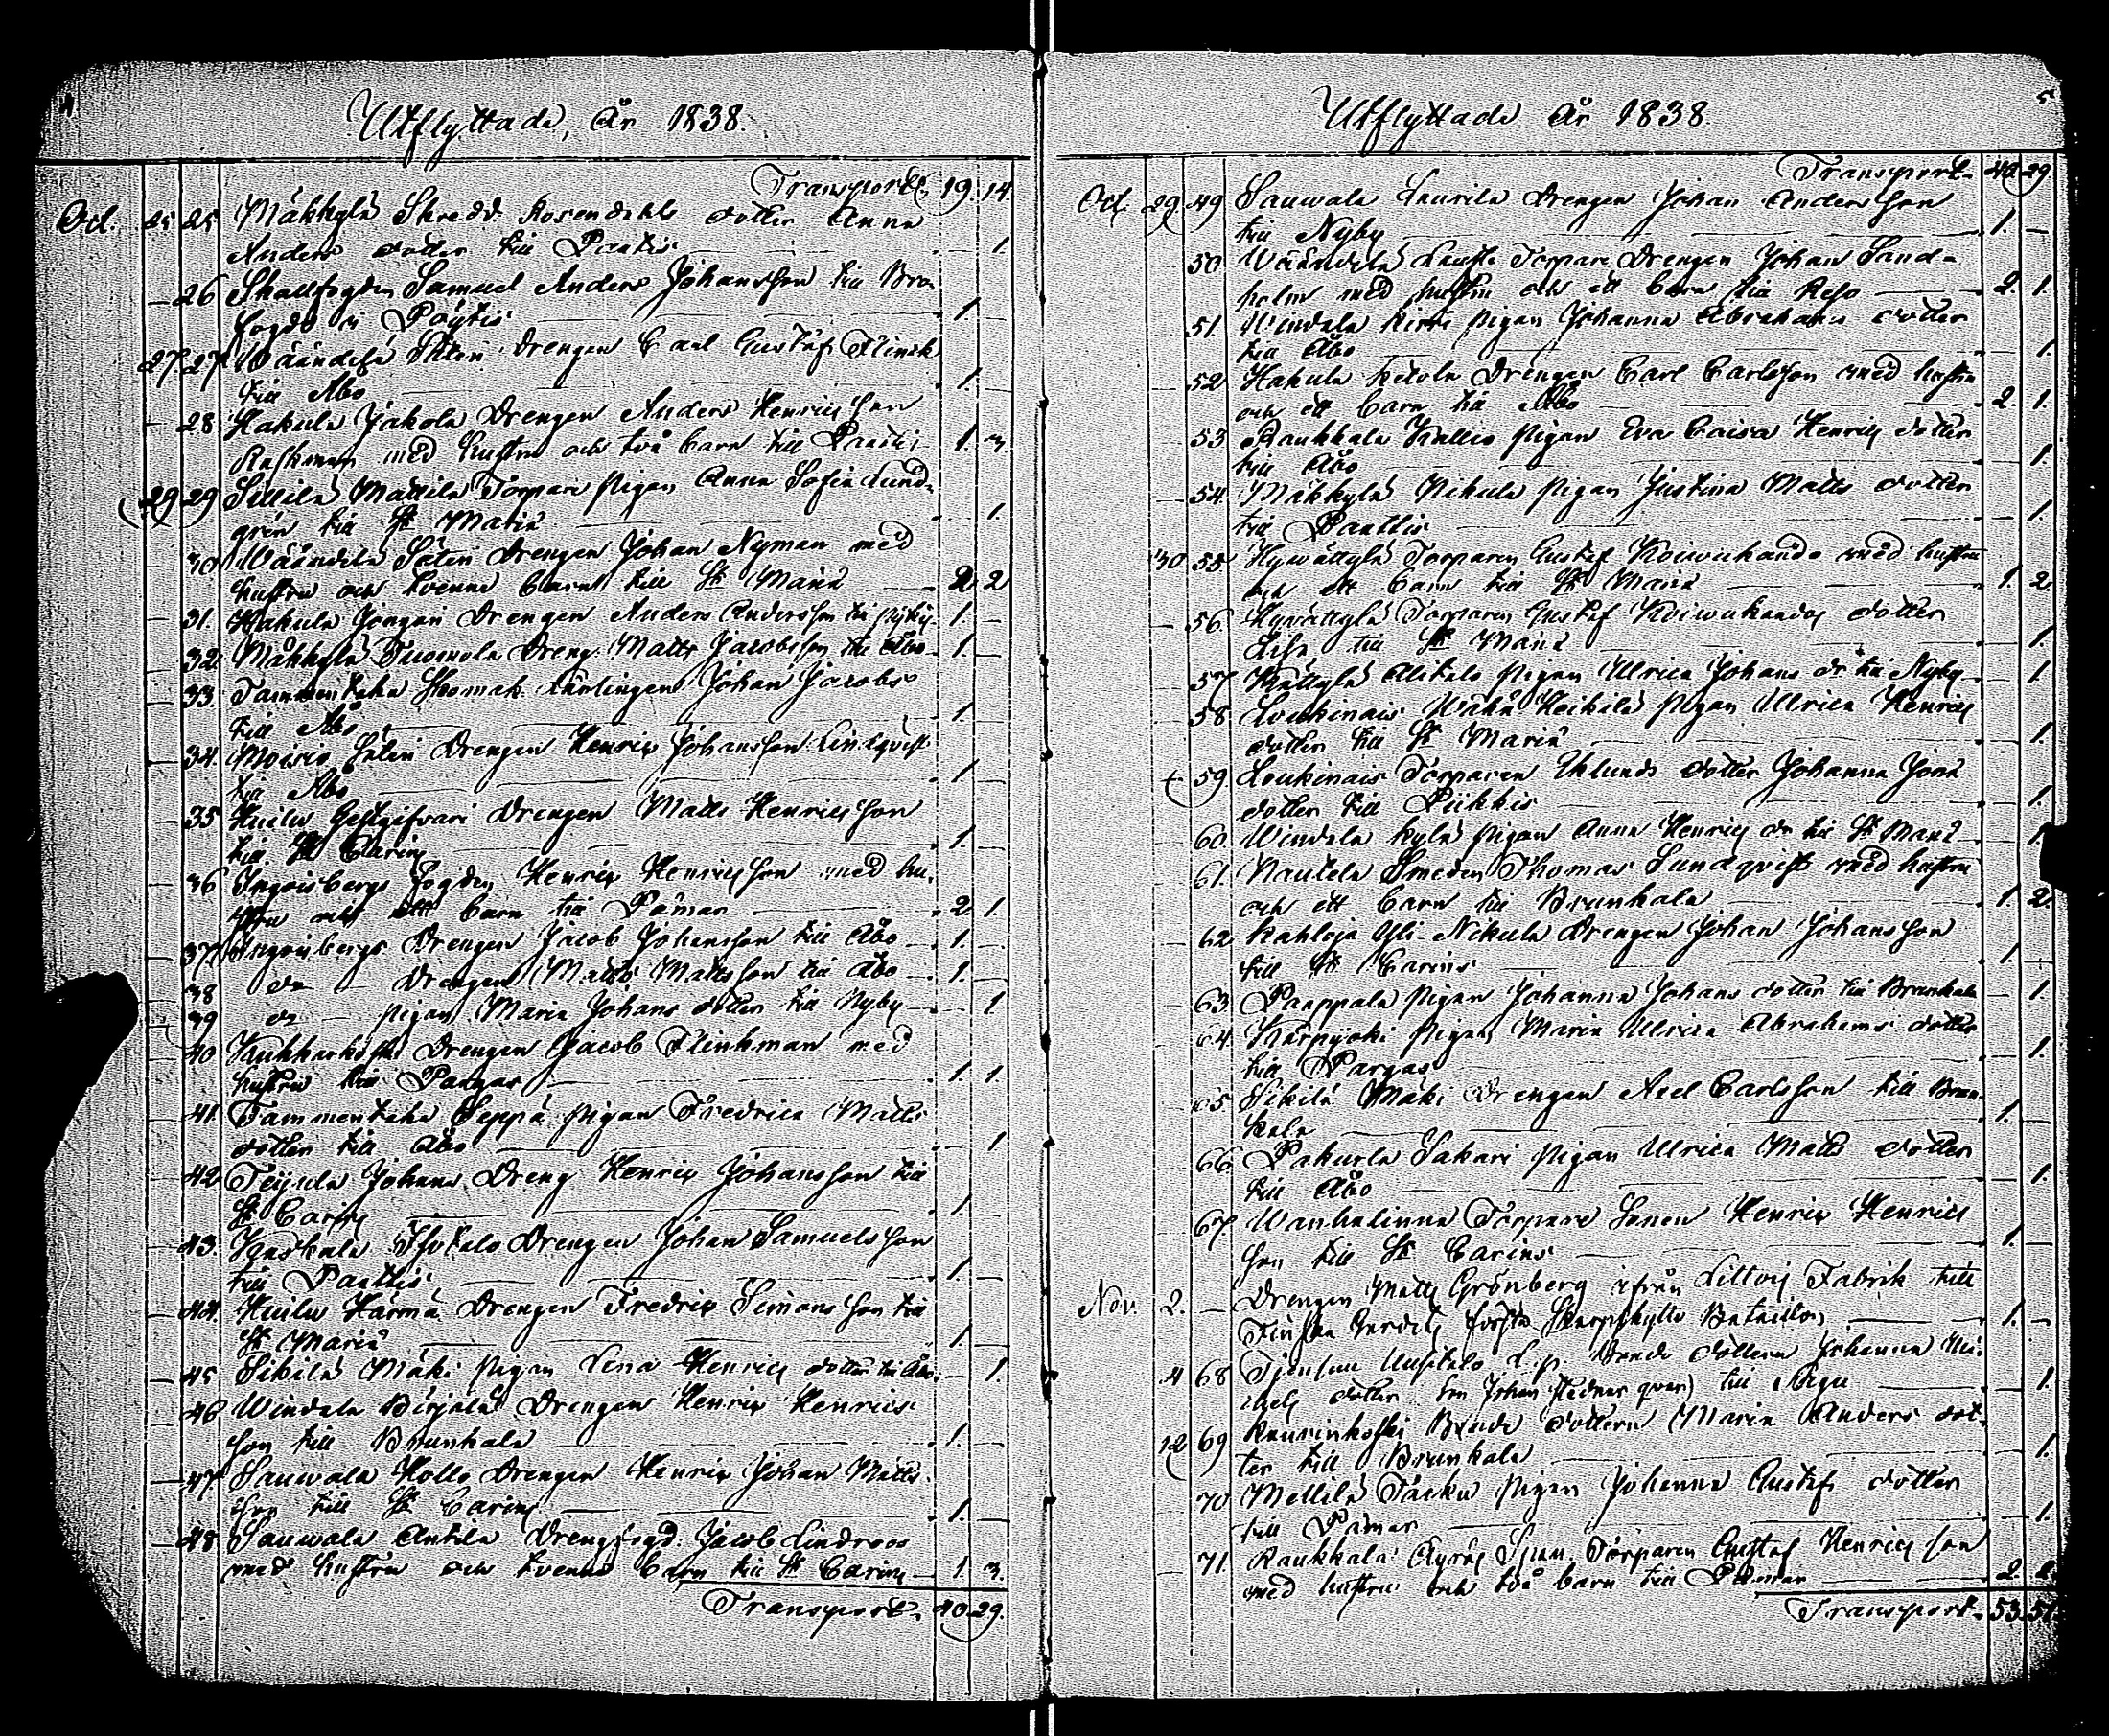 4
Utflyttade, År 1838.
Transport 19. 14.
Oct. 25 25 Mäkkylä Skredd. Rosendahls dotter Anna
Anders dotter till Pantis — 1.
26 Skallfogden Samuel Anders Johansson till Bro
fogde i Pöytis 1. —
27. 27 Wäändilä Sälen Drengen Carl Gustaf Flinck
till Åbo 1. —
28 Hakula Jakola Drengen Anders Henricsson
med hustru och två barn till 1. 3.
29 29 Sillilä Mattila Torpare Pigan Anna Sofia Lund-
grén till St Mariæ — 1.
30 Wäändilä Säteri Drengen Johan Nyman med
hustru och tvenne barn till St Mariæ 2 2
31. Hakula Drengen Anders Andersson till 1. —
32. Mäkkylä Tuomola Dreng. Matts Jacobsson till Åbo 1. —
33. Tammentaka Lärlingen Johan Jacobs
till Åbo 1. —
34. Moisio Säteri Drengen Henric Johansson Lindqvist
till Åbo 1. —
35 Huilu Gestgifvari Drengen Matts Henricsson
till St Carins 1. —
36 Ingoisbergs Fogden Henric Henricsson med hu-
stru och ett barn till Pämar 2. 1.
37 Ingoisbergs Drengen Jacob Johansson till Åbo 1. —
38 do — Drengen Matts Mattsson till Åbo 1. —
39 do — Pigan Maria Johans dotter till Nyby — 1
40 Drengen Jacob Flinkman med
hustru till Pargas 1. 1.
41. Tammentaka Seppä Pigan Fredrica Matts
dotter till Åbo — 1.
42 Teijula Johans Dreng Henric Johansson till
St Carins 1. —
43. Drengen Johan Samuelsson
till Panttis 1. —
44. Huilu Härmä Drengen Fredric Simonsson till
St Mariæ 1. —
45 Sikilä Mäki Pigan Lena Henrics dotter till Åbo — 1.
46 Windala Pirjälä Drengen Henric Henrics
son till Brunkala 1. —
47. Sauwala Hollo Drengen Henric Johan Matts
son till St Carins 1. —
48 Sauwala Antila Drengfogd. Jacob Lindroos
med hustru och tvenne barn till St Carins 1. 3.
Transport. 40. 29.
5
Utflyttade År 1838.
Transport. 40 29
Oct. 29 49 Sauwala Laurila Drengen Johan Andersson
till Nyby 1. —
50 Wäändilä Torpare Drengen Johan Sand-
holm med hustru och ett barn till Reso 2. 1.
51. Windala Pigan Johanna Abrahams dotter
till Åbo — 1.
52 Hakula Ketola Drengen Carl Carlsson med hustru
och ett barn till Åbo 2. 1.
53 Raukkala Kallio Pigan Eva Caisa Henrics dotter
till Åbo — 1.
54 Mäkkylä Nikula Pigan Justina Matts dotter
till Panttis — 1.
30 55 Hywättylä Torparen Gustaf Koiwukando med hustru
och ett barn till St Mariæ 1. 2.
56 Hyvättylä Torparen Gustaf Koiwukandos dotter
Lisa till St Mariæ — 1.
57 Alitalo Pigan Ulrica Johans dr till Nyby — 1
58 Loukinais Wähä Heikilä Pigan Ulrica Henrics
dotter till St Mariæ — 1.
59. Loukinais Torparen Eklunds dotter Johanna Jona
dotter till Piikkis — 1.
60 Windala Kylä Pigan Anna Henrics dr till St Mariæ — 1.
61. Nautela Smeden Thomas Sundqvist med hustru
och ett barn till Brunkala 1. 2.
62 Kahloja Yli-Nikula Drengen Johan Johansson
till St Carins 1. —
63. Paappala Pigan Johanna Johans dotter till Brunkala — 1.
64. Kärpijoki Pigan Maria Ulrica Abrahams dotter
till Pargas — 1.
65 Sikilä Mäki Drengen Axel Carlsson till Brun-
kala 1. —
66 Pakurla Sakari Pigan Ulrica Matts dotter
till Åbo — 1.
67. Wanhalinna Torpare Sonen Henric Henrics
son till St Carins 1. —
Nov. 2. — Drengen Matts Grönberg ifrån Littois Fabrik till
Finska Gardets första Skarpskytte Bataillon 1. —
4 68 Bonde dottern Johanna Mi-
chels dotter till Nagu — 1.
12 69 Bonde dottern Maria Anders dot-
ter till Brunkala — 1.
70 Mellilä Pigan Johanna Gustafs dotter
till Pämar — 1.
71. Raukkala Äyräs Torparen Gustaf Henricsson
med hustru och två barn till Pämar 2. 2.
Transport. 53. 51.